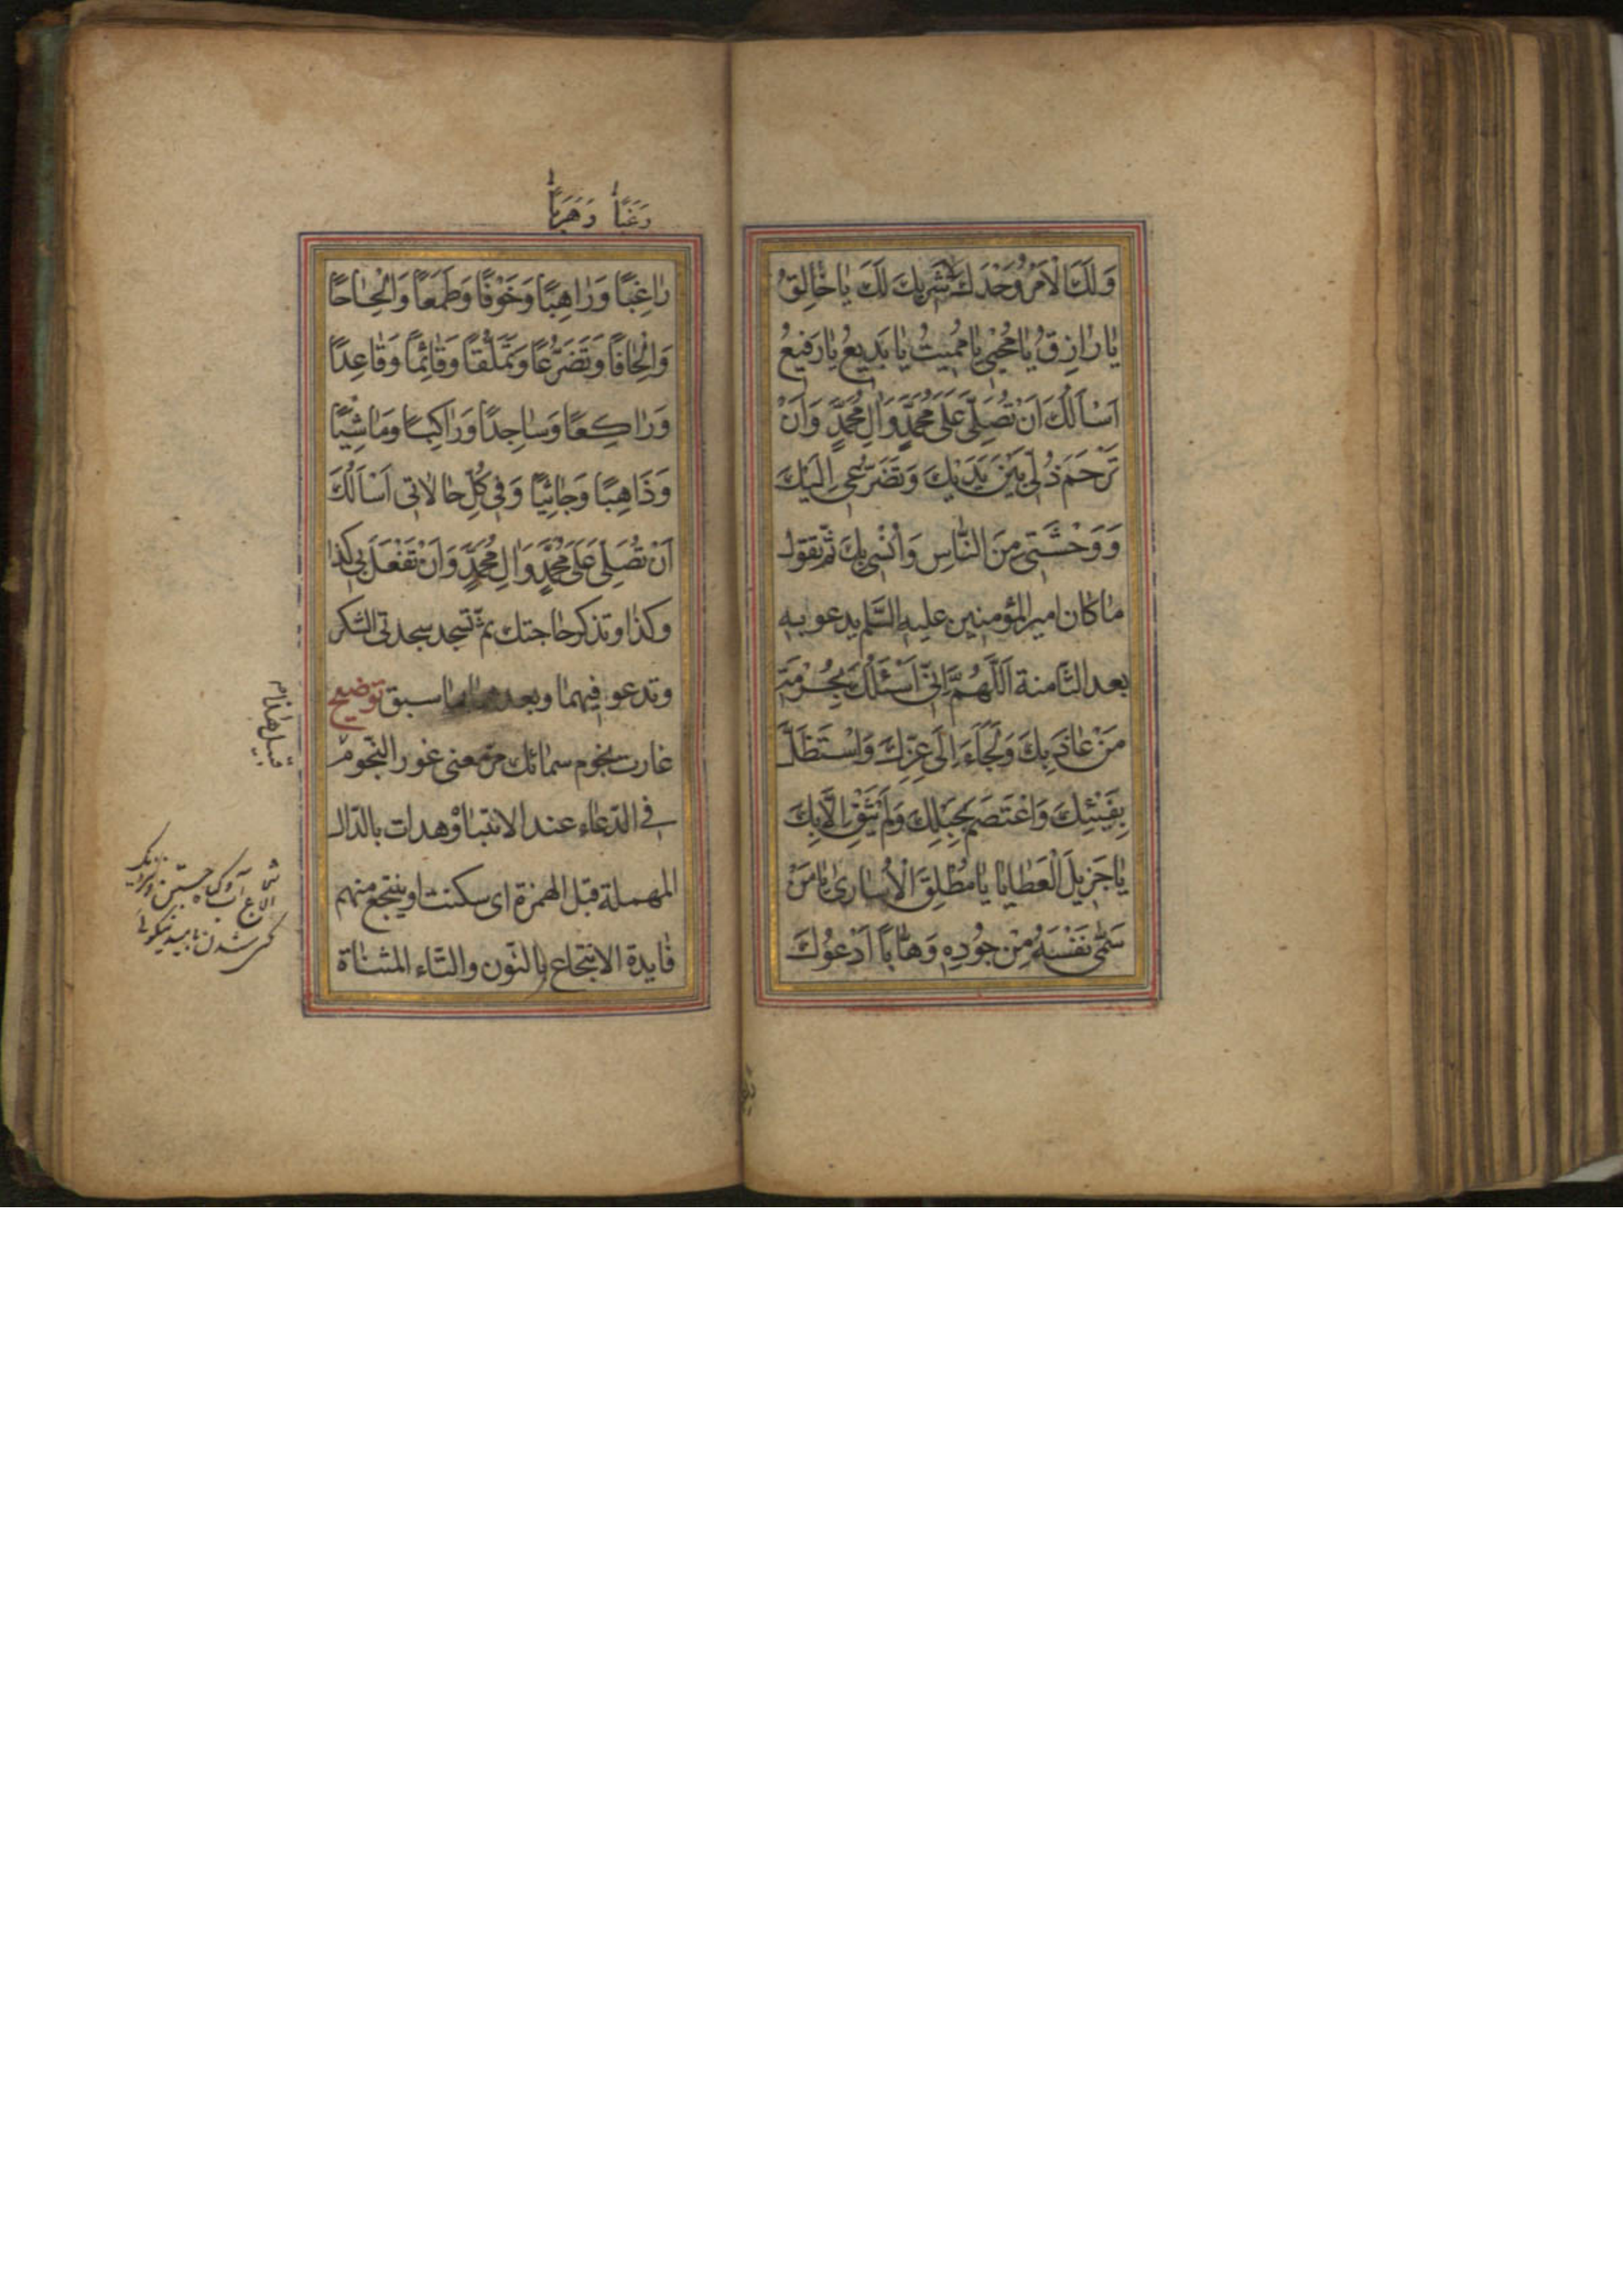 وَلَكَ الْاَمْرُ وَحْدَكَ لا شَرِيكَ لَكَ يٰا خٰالِقُ
يٰا رٰازِقُ يٰا مُحْيِي يٰا مُمِيتُ يٰا بَدِيعُ يٰا رَفِيعُ
اَسْاَلُكَ اَنْ تُصَلِّيَ عَلىٰ مُحَمَّدٍ وَاٰلِ مُحَمَّدٍ وَاَنْ
تَرْحَمَ ذُلّي بَيْنَ يَدَيْكَ وَتَضَرُّعي اِلَيْكَ
وَوَحْشَتي مِنَ النّٰاسِ وَاُنْسي بِكَ ثمّ تقول
ما كان امير المؤمنين عليه السّلم يدعو به
بعد الثّامنة اَللّٰهُمَّ اِنّي اَسْئَلُكَ بِحُرْمَةِ
مَنْ عٰاذَ بِكَ وَلَجَاَءَ اِلىٰ عِزِّكَ وَاسْتَظَلَّ
بِفَيْئِكَ وَاعْتَصَمَ بِحَبْلِكَ وَلَمْ يَثِقْ اِلّٰا بِكَ
يٰا جَزِيلَ الْعَطٰايٰا يٰا مُطْلِقَ الْاُسٰارىٰ يٰا مَنْ
سَمّٰى نَفْسَهُ مِنْ جُودِهِ وَهّٰابًا اَدْعُوكَ
رَغَبًا رَهَبًا
رٰاغِبًا وَرٰاهِبًا وَخَوْفًا وَطَمَعًا وَاِلْحٰاحًا
وَاِلْحٰافًا وَتَضَرُّعًا وَتَمَلُّقًا وَقٰائِمًا وَقٰاعِدًا
وَرٰاكِعًا وَسٰاجِدًا وَرٰاكِبًا وَمٰاشِيًا
وَذٰاهِبًا وَجٰائِيًا وَفي كُلِّ حٰالٰاتي اَسْاَلُكَ
اَنْ تُصَلِّيَ عَلىٰ مُحَمَّدٍ وَاٰلِ مُحَمَّدٍ وَاَنْ تَفْعَلَ بي كذا
وكذا وتذكر حاجتك ثمّ تسجد سجدتي الشكر
وتدعو فيهما وبعدهما ما سبق توضيح
غارت نجوم سمائك مرّ معنى غور النّجوم
في الدّعاء عند الانتباه وهدات بالدّال
المهملة قبل الهمزة اى سكنت او ينتجع منهم
فايدة الانتجاع بالنّون والتّاء المثناة